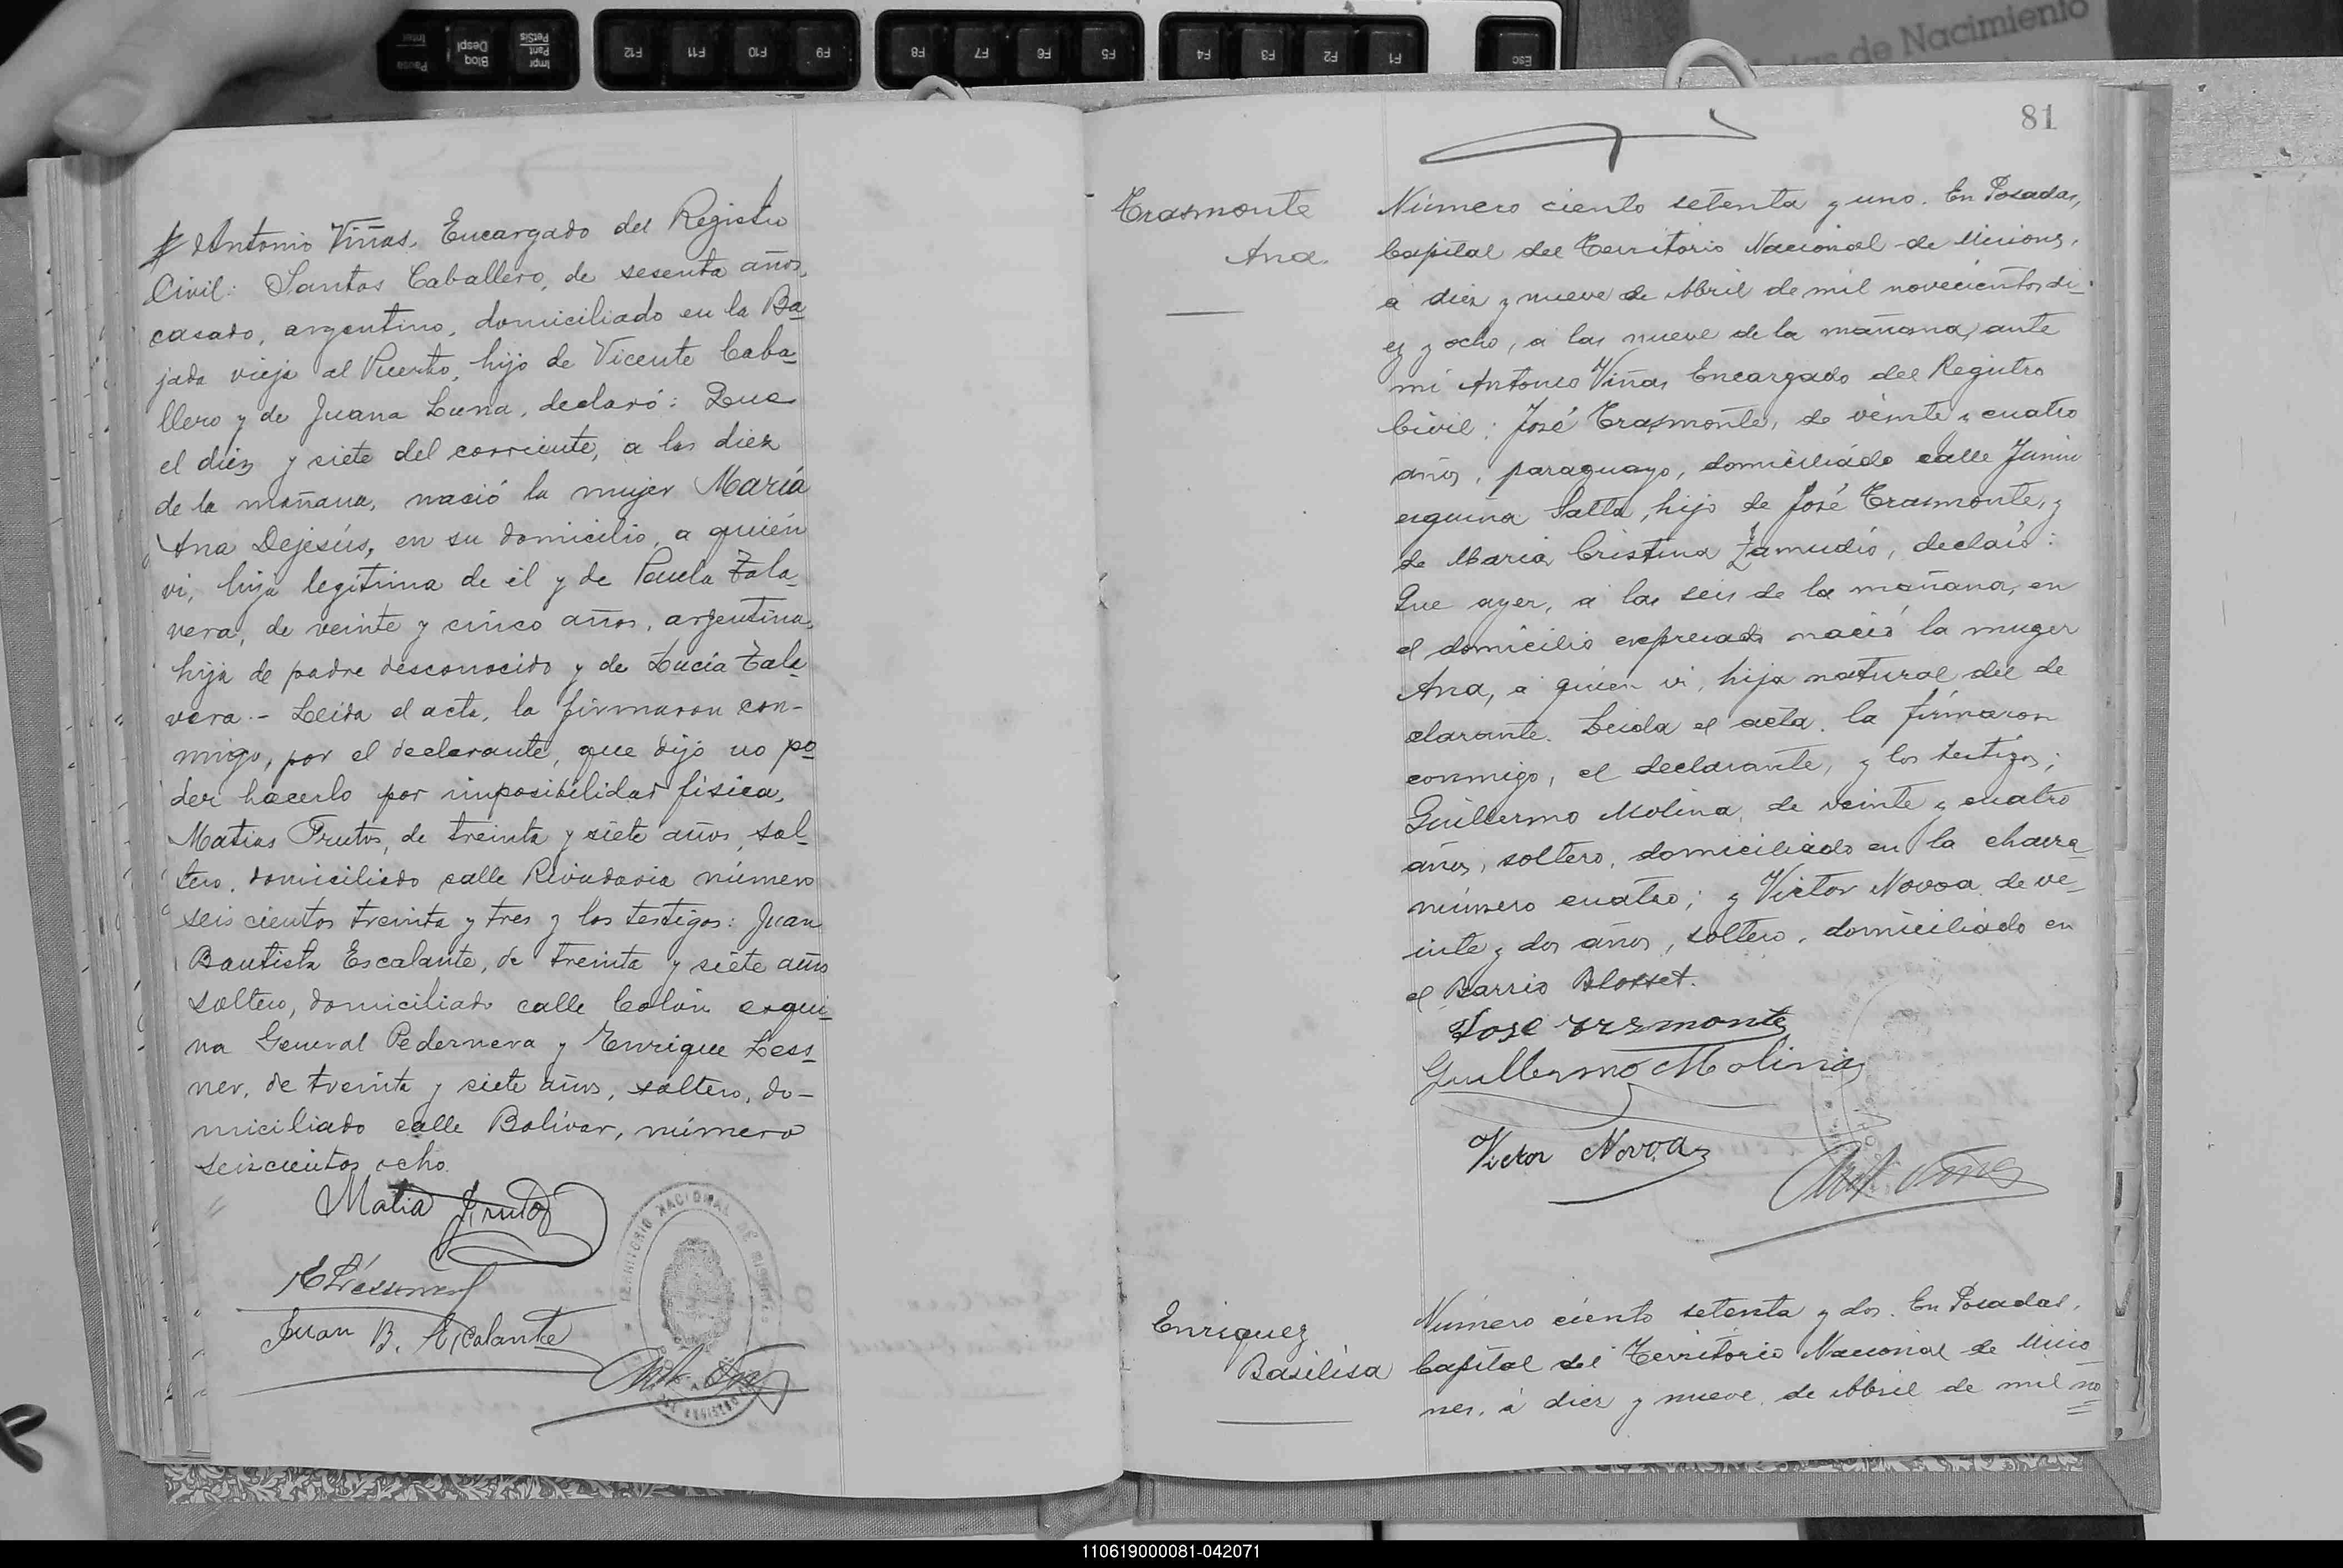 Impr Pant PetSis
Bloq Despl
Pausa Inter
F12
F11
F10
F9
F8
F7
F6
F5
F4
F3
F2
F1
Esc
de Nacimiento
Antonio Viñas, Encargado del Registro
Civil: Santos Caballero, de sesenta años,
casado, argentino, domiciliado en la Ba
jada vieja al Puerto, hijo de Vicente Caba
llero y de Juana Luna, declaró: Que
el diez y siete del corriente, a las diez
de la mañana, nació la mujer María
Ana Dejesús, en su domicilio, a quién
vi, hija legítima de él y de Paula Tala
vera, de veinte y cinco años, argentina,
hija de padre desconocido y de Lucía Tala
vera.- Leida el acta, la firmaron con-
migo, por el declarante, que dijo no po
der hacerlo por imposibilidad física,
Matias Frutos, de treinta y siete años, sol
tero, domiciliado calle Rivadavia número
seis cientos treinta y tres y los testigos: Juan
Bautista Escalante, de treinta y siete años
soltero, domiciliado calle Colón esqui
na General Pedernera y Enrique Less
ner, de treinta y siete años, soltero, do-
miciliado calle Bolívar, número
seiscientos ocho.
Matia Frutos
E Lessner
Juan B. Escalante
TERRITORIO NACIONAL DE MISIONES
81
Trasmonte
Ana.
Número ciento setenta y uno. En Posadas,
Capital del Territorio Nacional de Misiones,
a diez y nueve de Abril de mil novecientos di-
ez y ocho, a las nueve de la mañana, ante
mí Antonio Viñas Encargado del Registro
Civil: José Trasmonte, de veinte y cuatro
años, paraguayo, domiciliado calle Junin
esquina Salta, hijo de José Trasmonte, y
de María Cristina Zamudio, declaró:
Que ayer, a las seis de la mañana, en
el domicilio expresado nació la muger
Ana, a quien vi, hija natural del de
clarante. Leida el acta, la firmaron
conmigo, el declarante, y los testigos;
Guillermo Molina, de veinte y cuatro
años, soltero, domiciliado en la chacra
número cuatro; y Victor Novoa, de ve-
inte y dos años, soltero, domiciliado en
el Barrio Blosset.
Jose Trasmonte
Guillermo Molina
Victor Novoa
Enriquez
Basilisa
Número ciento setenta y dos. En Posadas,
Capital del Territorio Nacional de Misio
nes, a diez y nueve de Abril de mil no
110619000081-042071